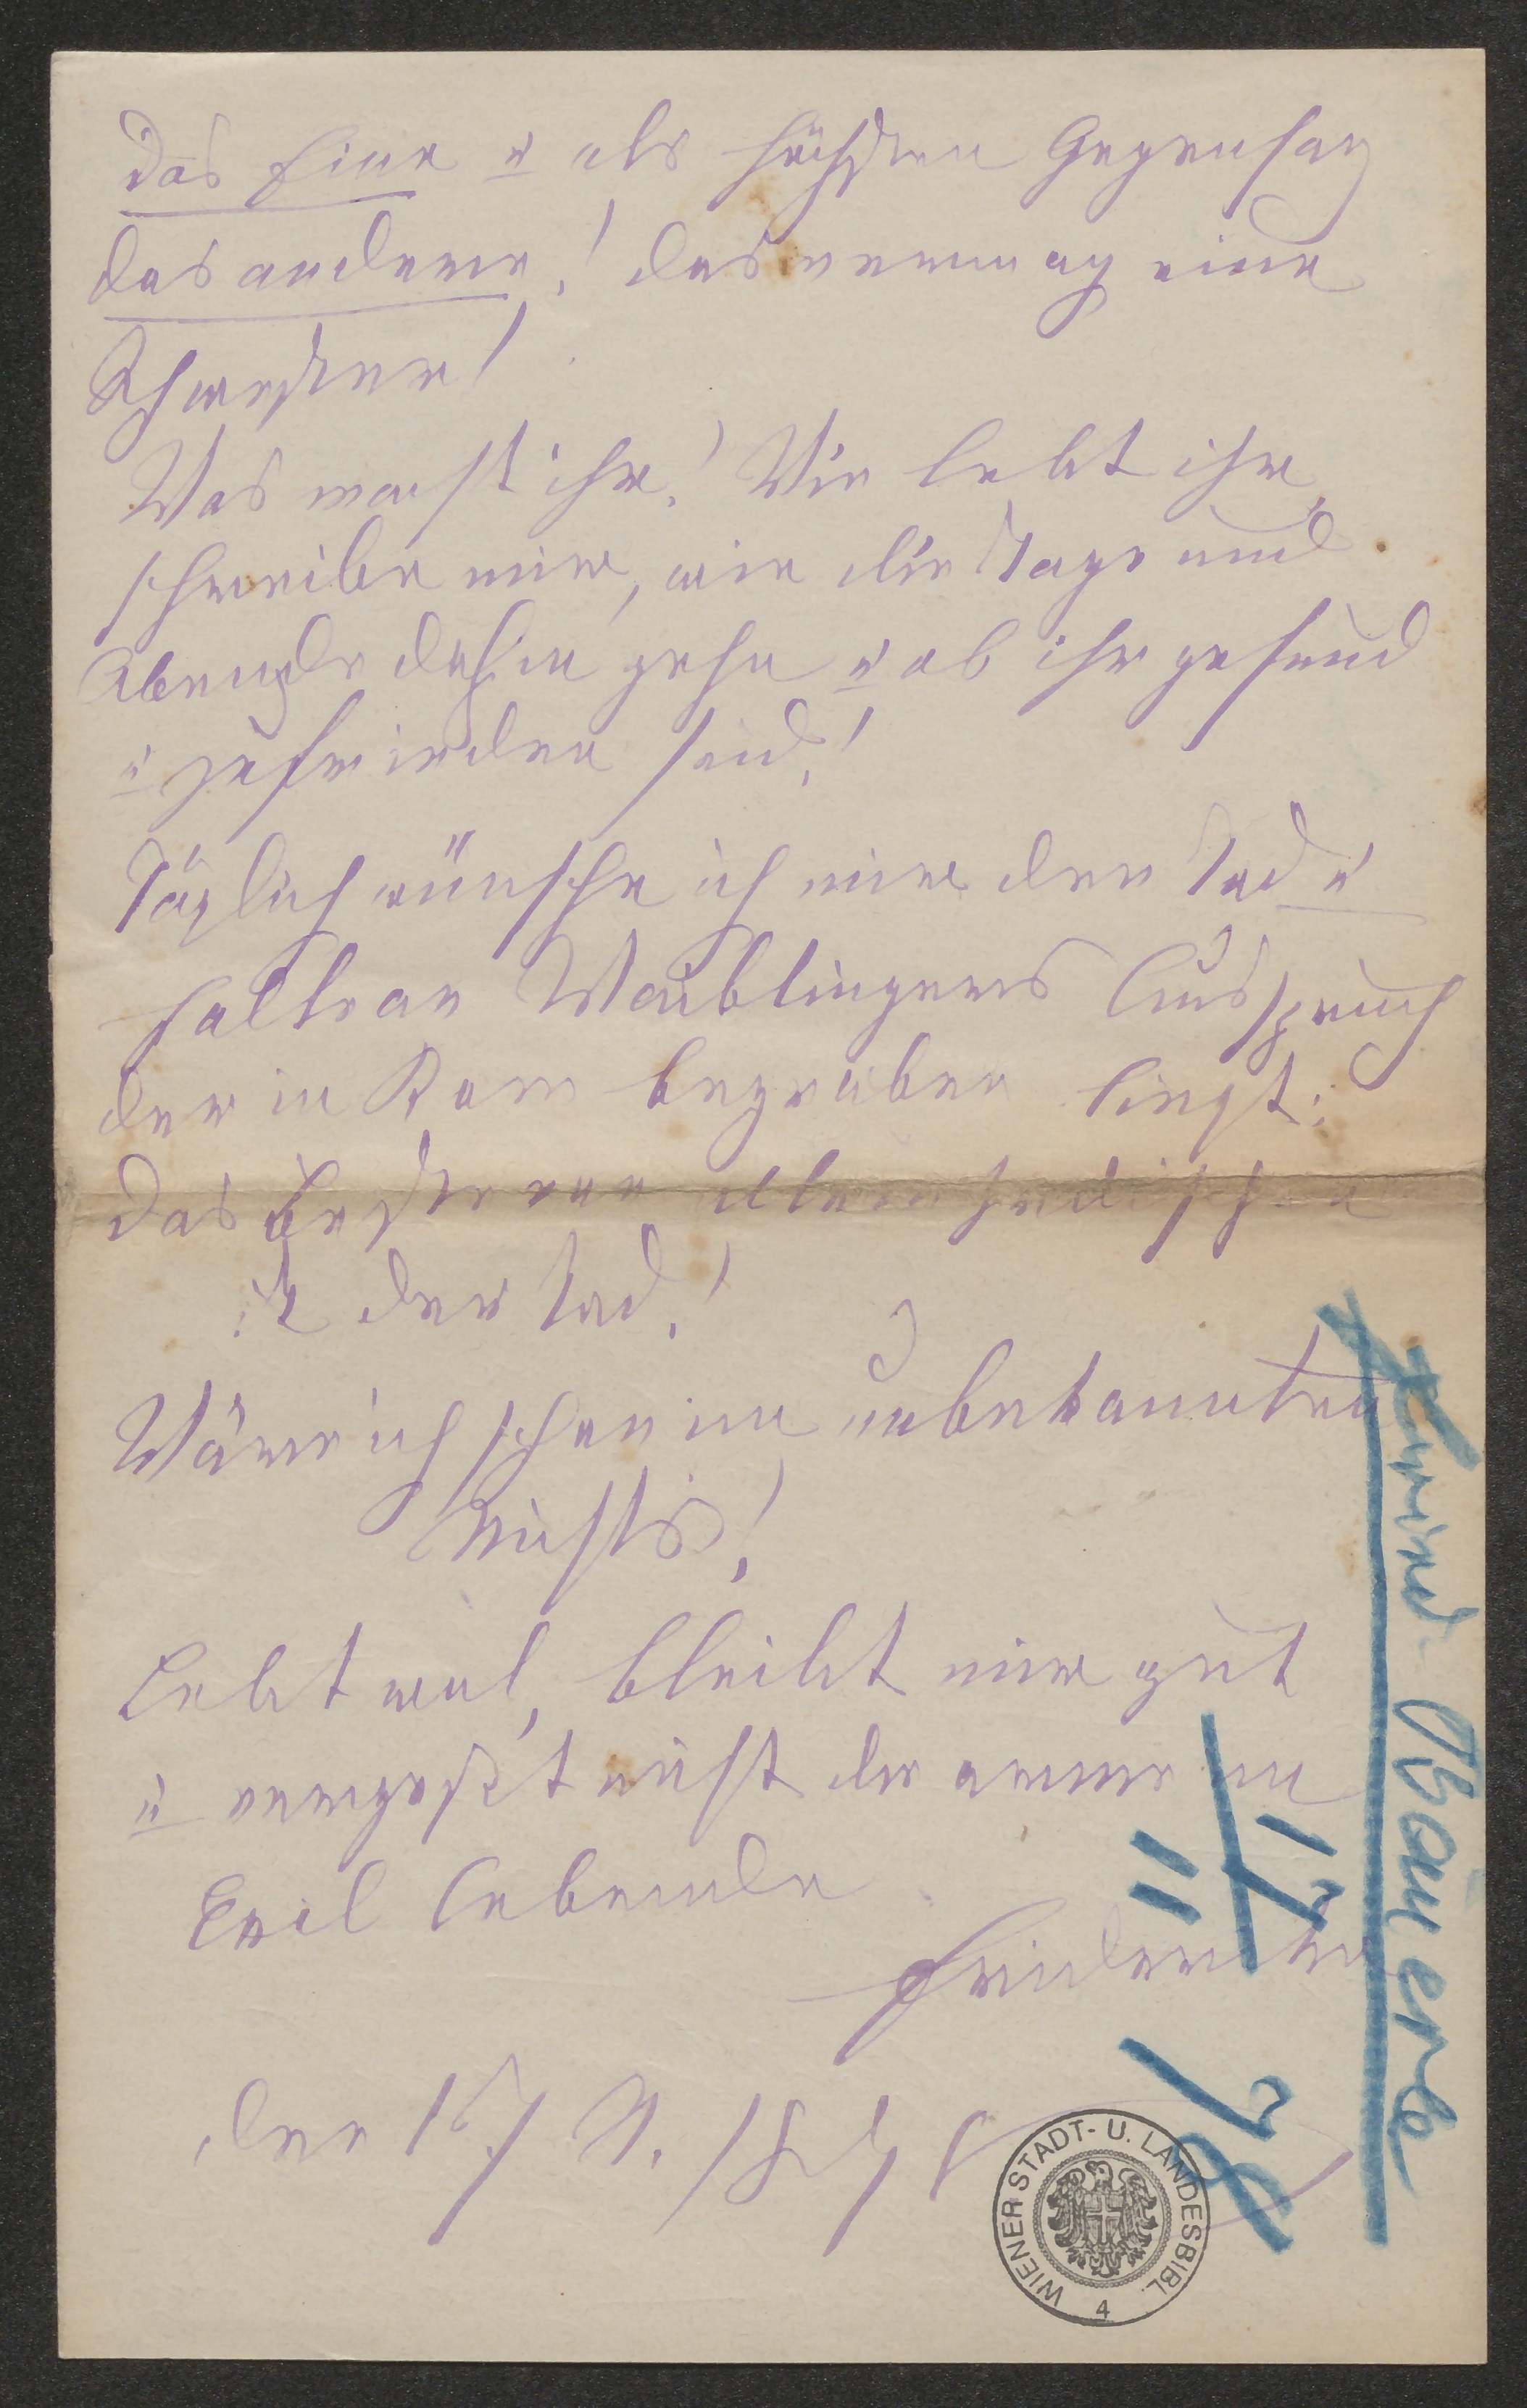 Das Eine u als höchsten Gegensatz
das andere! das vermag eine
Schwester!
Was macht ihr! Wie lebt ihr,
schreibe mir, wie die Tage und
Abende dahin gehn u ob ihr gesund
u zufrieden seid!
Täglich wünsche ich mir den Tod u
halte an Waiblingers Ausspruch
der in Rom begraben liegt:
Das Beste von allem Irdischen
ist der Tod!
Wäre ich schon im unbekannten
Nichts!
Lebt wol, bleibt mir gut
u vergeßt nicht die arme im
Exil lebende
Friederike
den 17 N. 1878
Bäuerle
17
11
78
WIENER STADT- U. LANDESBIBL.
4